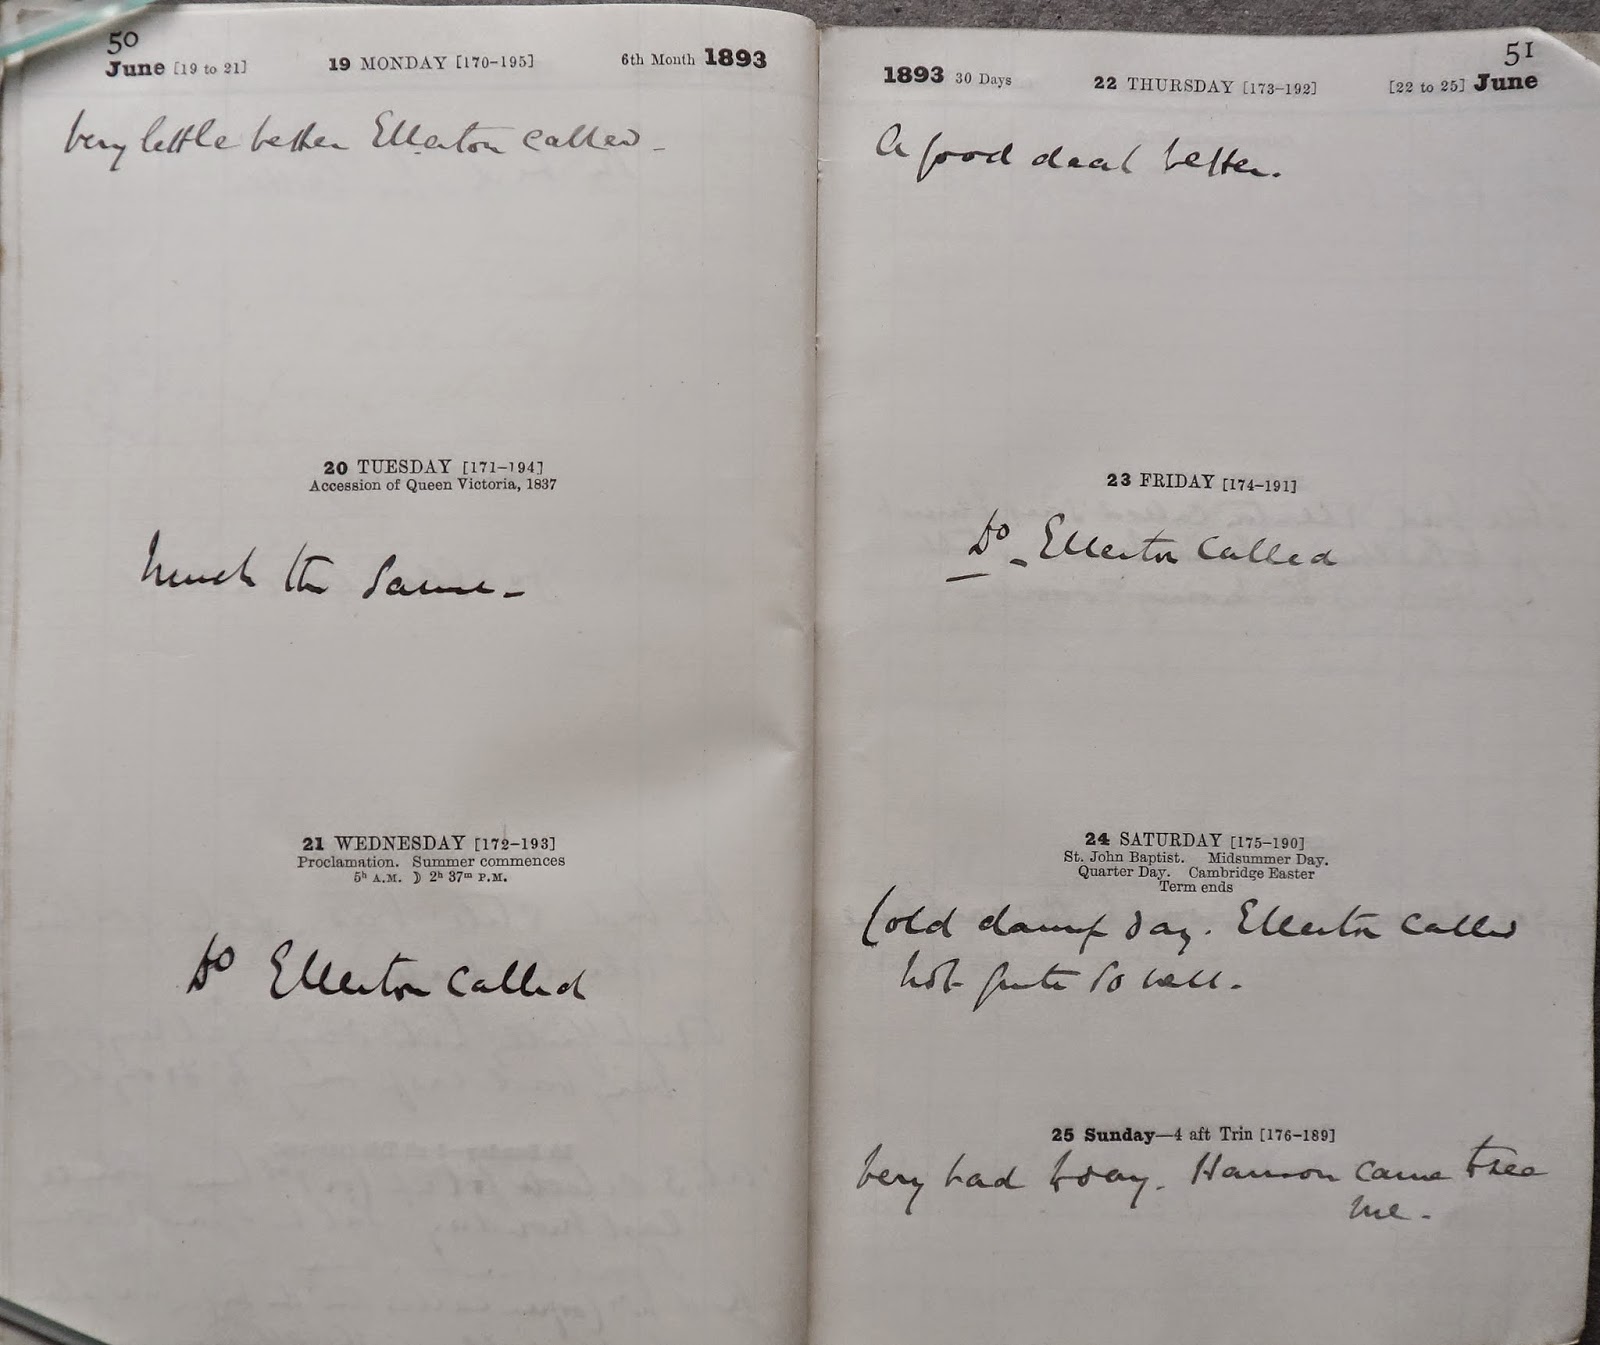 50
June [19 to 21] 19 MONDAY [170-195] 6th Month 1893
Very little better Ellerton called -
20 TUESDAY [171-194]
Accession of Queen Victoria, 1837
Much the same -
21 WEDNESDAY [172-193]
Proclamation. Summer commences
5h A.M. ☽ 2h 37m P.M.
Do Ellerton called
51
1893 30 Days 22 THURSDAY [173-192] [22 to 25] June
A good deal better.
23 FRIDAY [174-191]
Do - Ellerton called
24 SATURDAY [175-190]
St. John Baptist. Midsummer Day.
Quarter Day. Cambridge Easter
Term ends
Cold damp day. Ellerton called
not quite so well.
25 Sunday—4 aft Trin [176-189]
Very bad today. came to see
me -